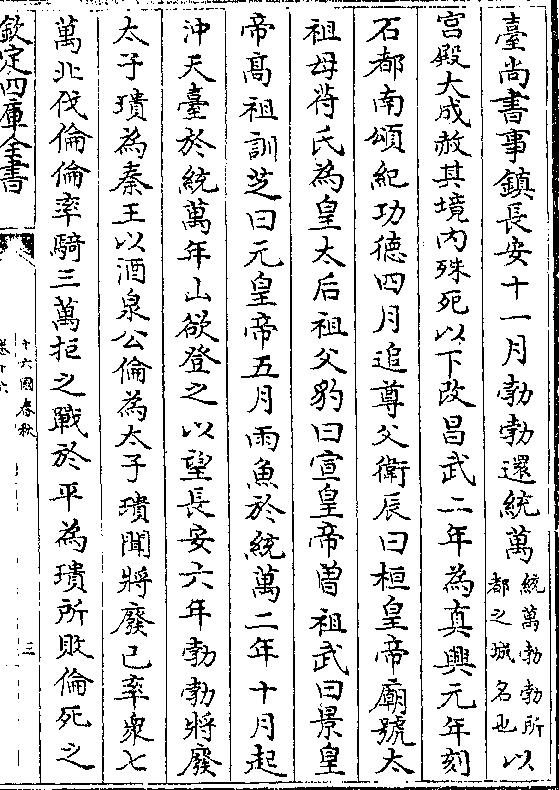 臺尚書事鎮長安十一月勃勃還統萬統萬勃勃所都之城名也以
宮殿大成赦其境内殊死以下改昌武二年為真興元年刻
石都南頌紀功德四月追尊父衛辰曰桓皇帝廟號太
祖母苻氏為皇太后祖父豹曰宣皇帝曽祖武曰景皇
帝髙祖訓芝曰元皇帝五月雨魚於統萬二年十月起
沖天臺於統萬年山欲登之以望長安六年勃勃將廢
太子璝為秦王以酒泉公倫為太子璝聞將廢己率衆七
萬北伐倫倫率騎三萬拒之戰於平為璝所敗倫死之
欽定四庫全書
十六國春秋
卷十六
三